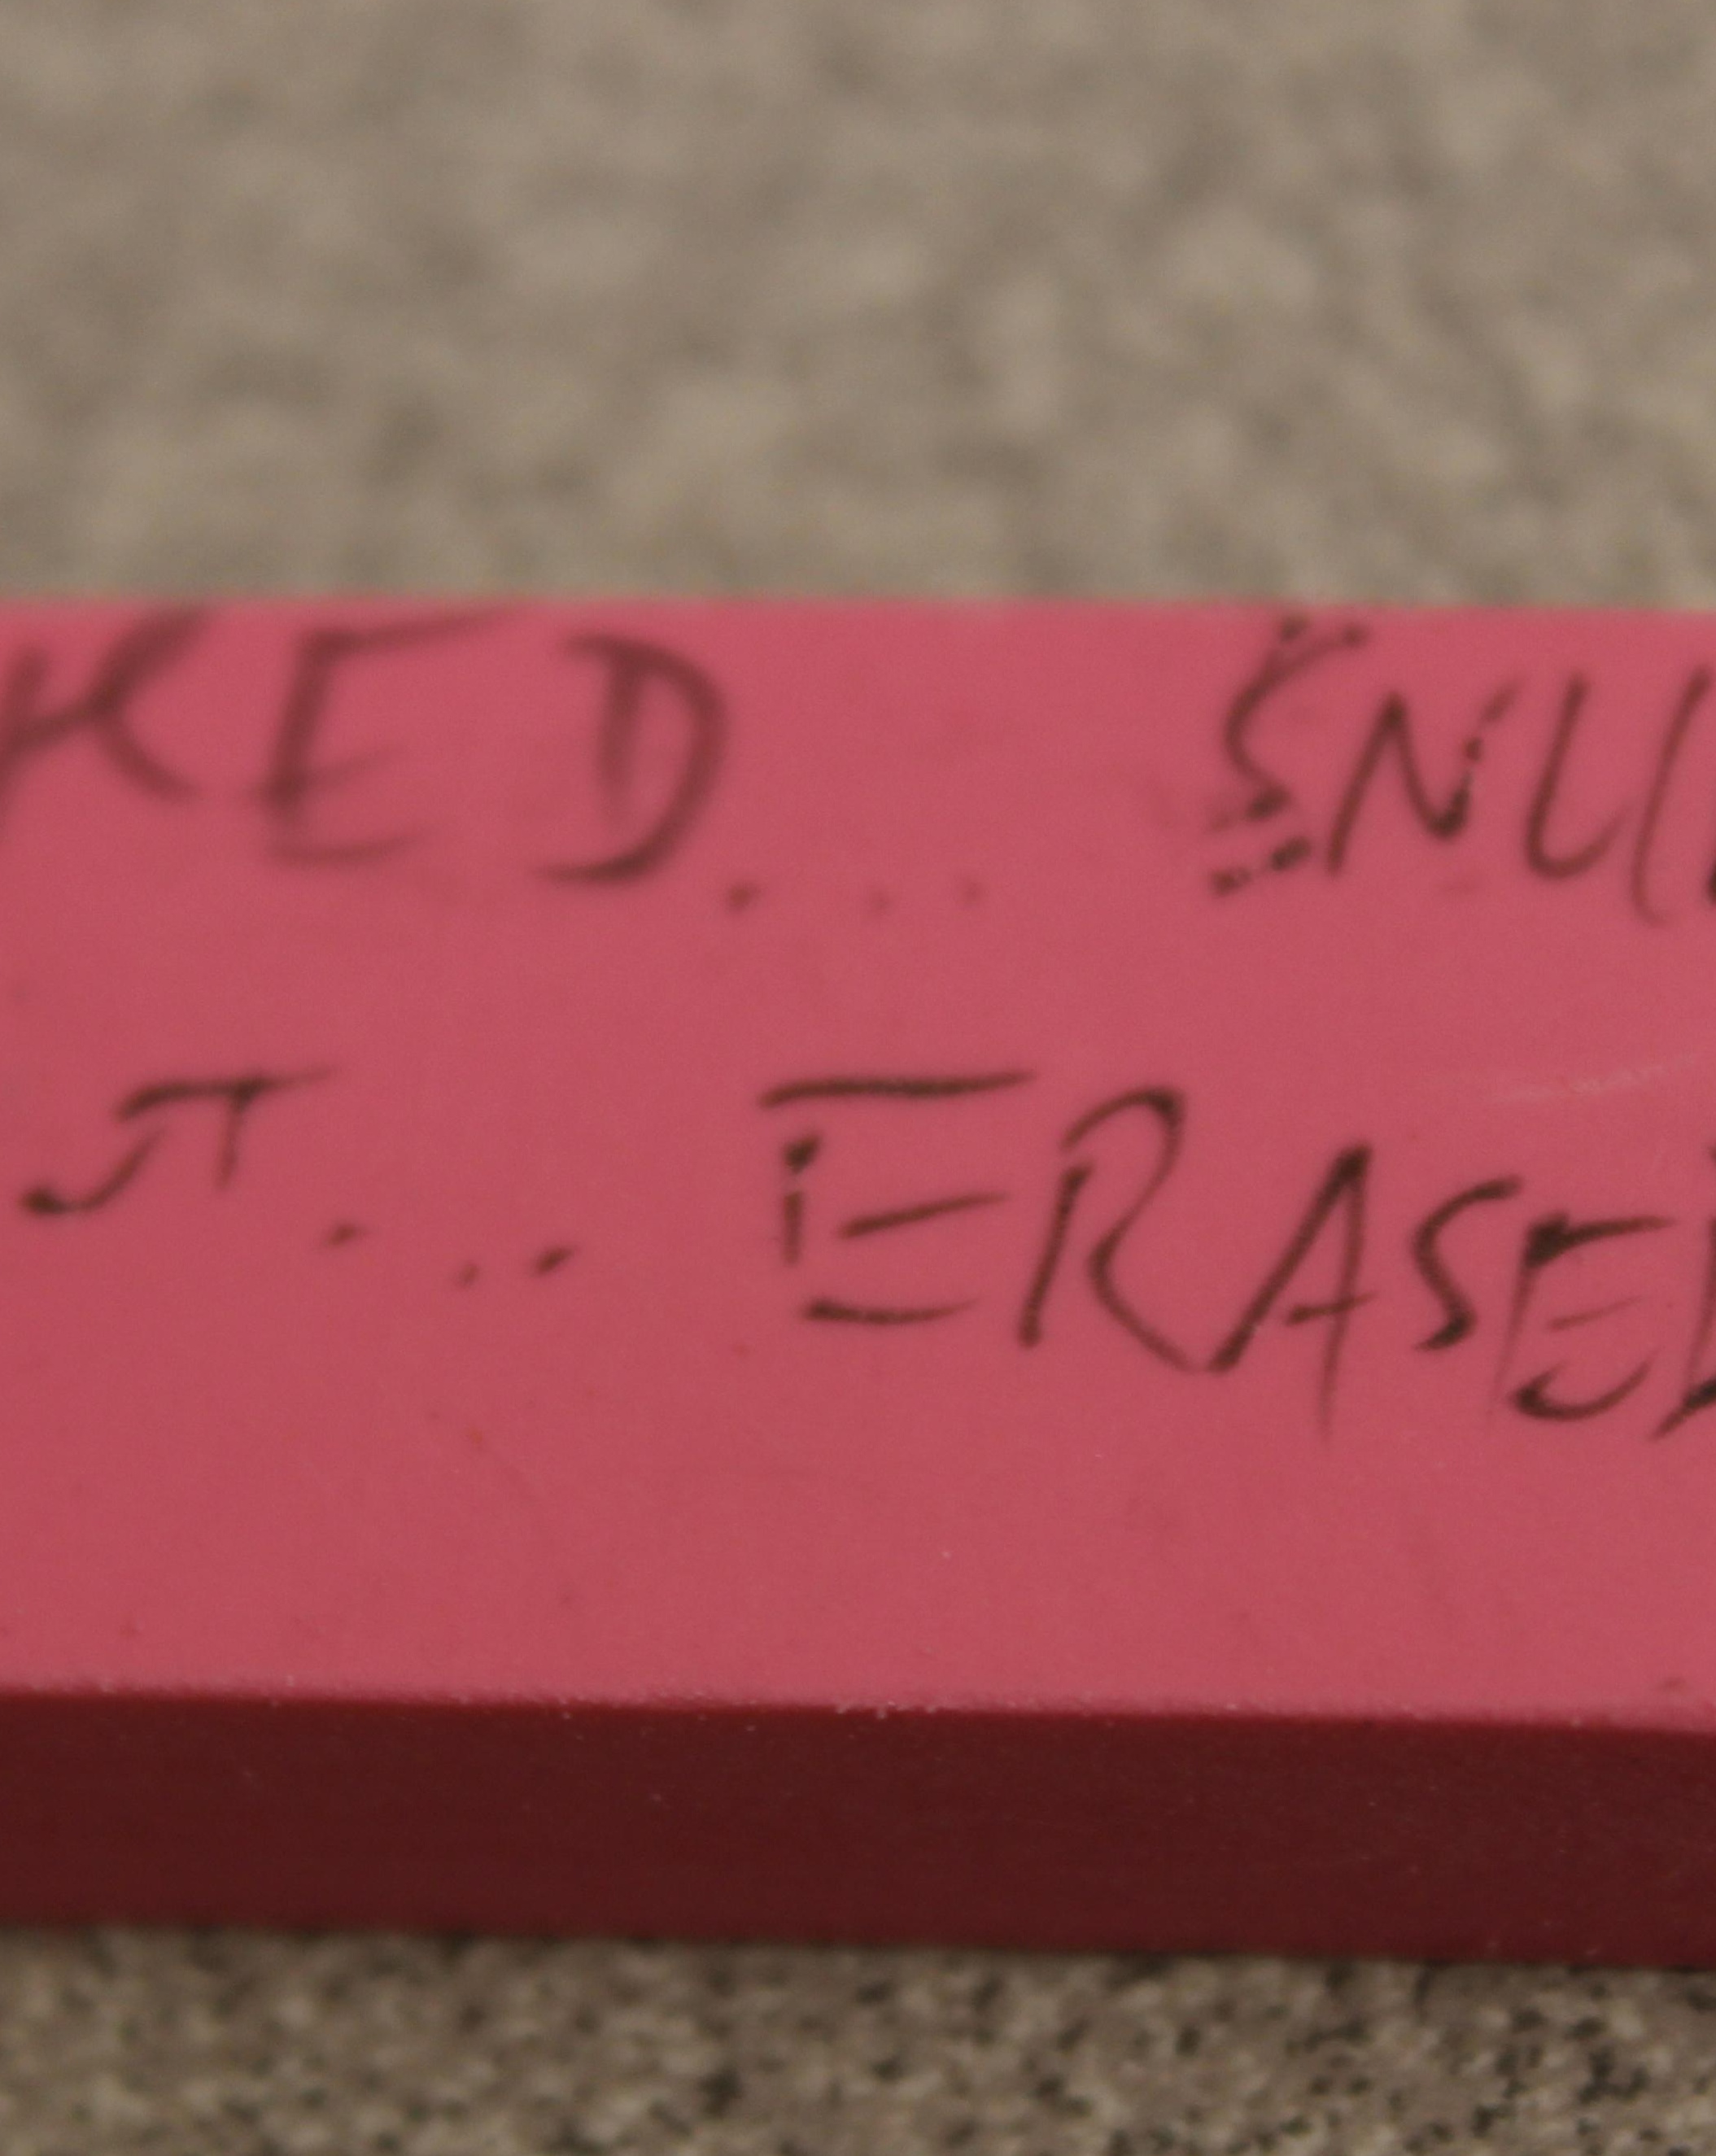 KED... SNU
T... ERASED